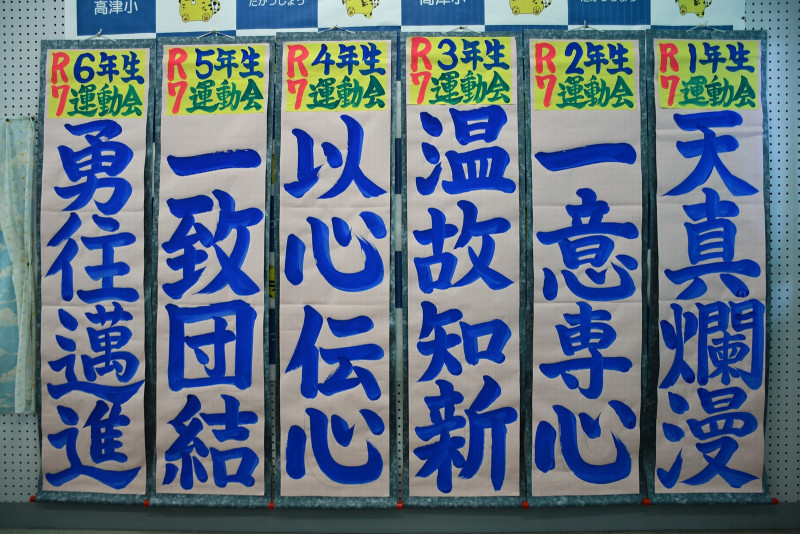 高津小
たかつしょう
高津小
たかつしょう
R7 6年生
運動会
勇往邁進
R7 5年生
運動会
一致団結
R7 4年生
運動会
以心伝心
R7 3年生
運動会
温故知新
R7 2年生
運動会
一意専心
R7 1年生
運動会
天真爛漫